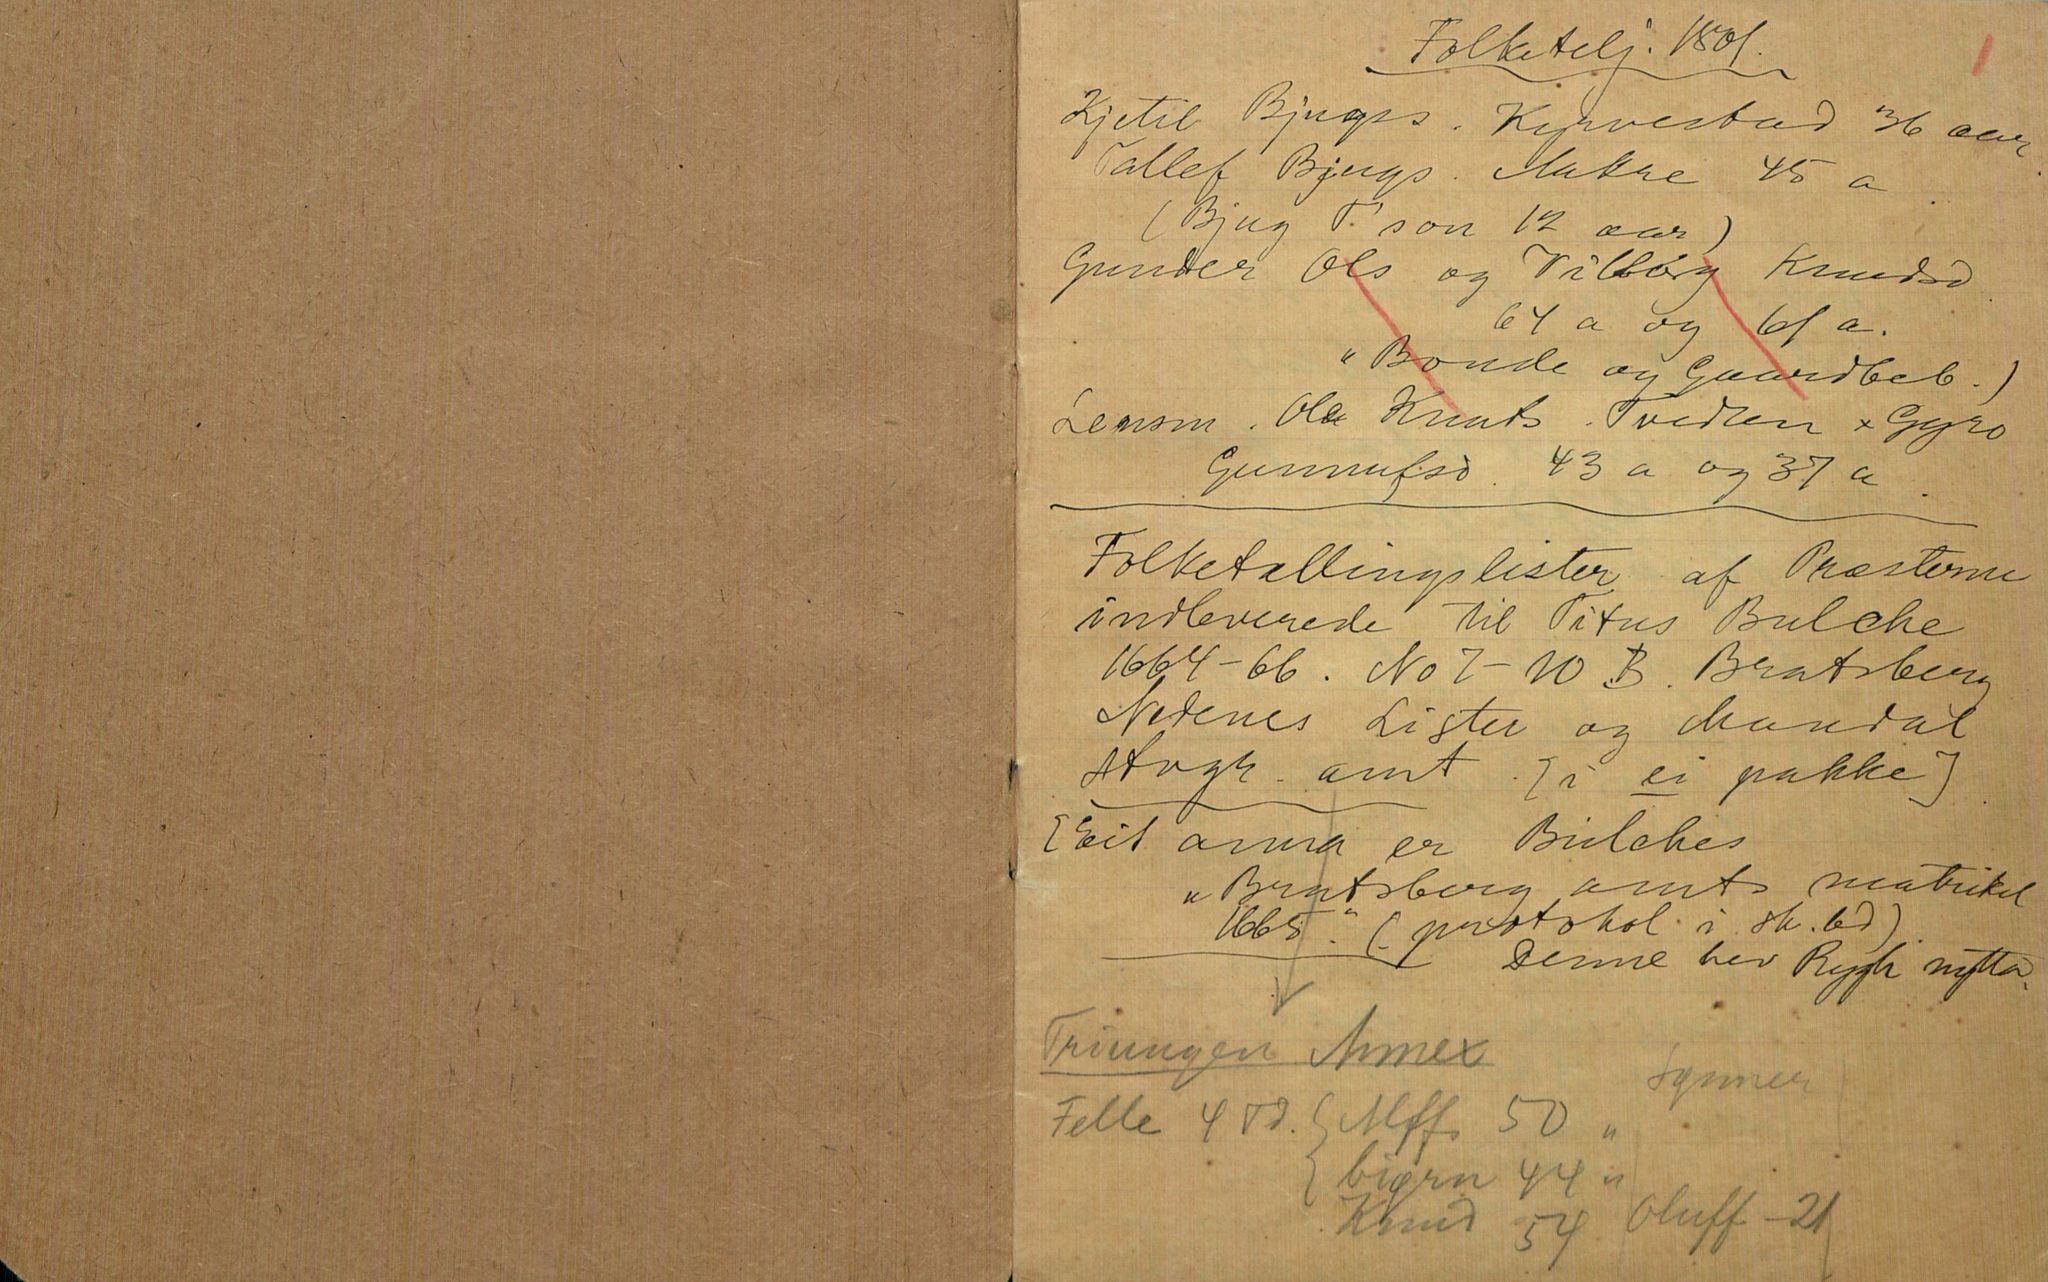 Folketelj. 1801.
1
Kjetil Bjugss. Kyrvestad 36 aar
Tallef Bjugs. Makre 45 a
(Bjug T'son 12 aar)
Gunder Ols og Vilborg Knudsd
64 a og 61 a.
"Bonde og Gaardbeb.)
Lensm. Ola Knuts. Tvedten x Gyro
Gunnufsd. 43 a og 37 a.
Folketællingslister af Præsterne
indleverede til Titus Bulche
1664-66. No 7-10 B. Bratsberg
Nedenes Lister og Mandal
Stvgr. amt. [i ei pakke]
[Eit anna er Bulches
"Bratsberg amts matrikel
1665." (protokol i sk. bd)
Denne hev Rygh nytta.
Triungen Annex
Sønner
Felle 4 Td. { Alff 50 "
{ biørn 44 "
Knud 54 Oluff - 21